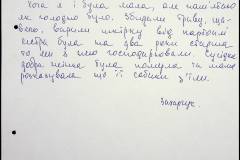 Хоча я і була мала, але пам'ятаю
як голодно було. Збирали траву, ща-
вель, варили шкірку від картоплі
сестра була на два роки старша
то ми з нею господарювали. Сусідка
добра жінка була померла та мама
розказувала що її собаки з'їли.
Захарчук.